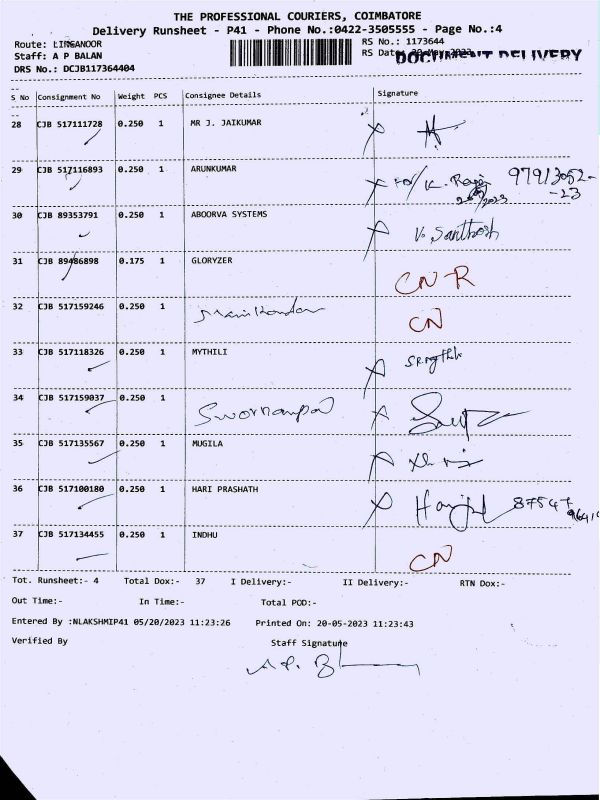 THE PROFESSIONAL COURIERS, COIMBATORE
Delivery Runsheet - P41 - Phone No.:0422-3505555 - Page No.:4
Route: LINGANOOR RS No.: 1173644
Staff: A P BALAN RS Date: 20-May-2023 DOCUMENT DELIVERY
DRS No.: DCJB117364404
S No Consignment No Weight PCS Consignee Details Signature
28 CJB 517111728 0.250 1 MR J. JAIKUMAR
29 CJB 517116893 0.250 1 ARUNKUMAR
30 CJB 89353791 0.250 1 ABOORVA SYSTEMS V. Santhosh
31 CJB 89486898 0.175 1 GLORYZER CN-R
32 CJB 517159246 0.250 1 Manikandan CN
33 CJB 517118326 0.250 1 MYTHILI
34 CJB 517159037 0.250 1
35 CJB 517135567 0.250 1 MUGILA
36 CJB 517100180 0.250 1 HARI PRASHATH
37 CJB 517134455 0.250 1 INDHU CN
Tot. Runsheet:- 4 Total Dox:- 37 I Delivery:- II Delivery:- RTN Dox:-
Out Time:- In Time:- Total POD:-
Entered By :NLAKSHMIP41 05/20/2023 11:23:26 Printed On: 20-05-2023 11:23:43
Verified By Staff Signature